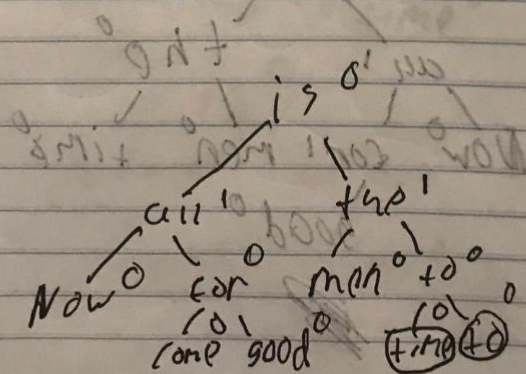 is 0'
all' the'
Now 0 for 0 men 0 to 0
0 0 0
come good 0 time to